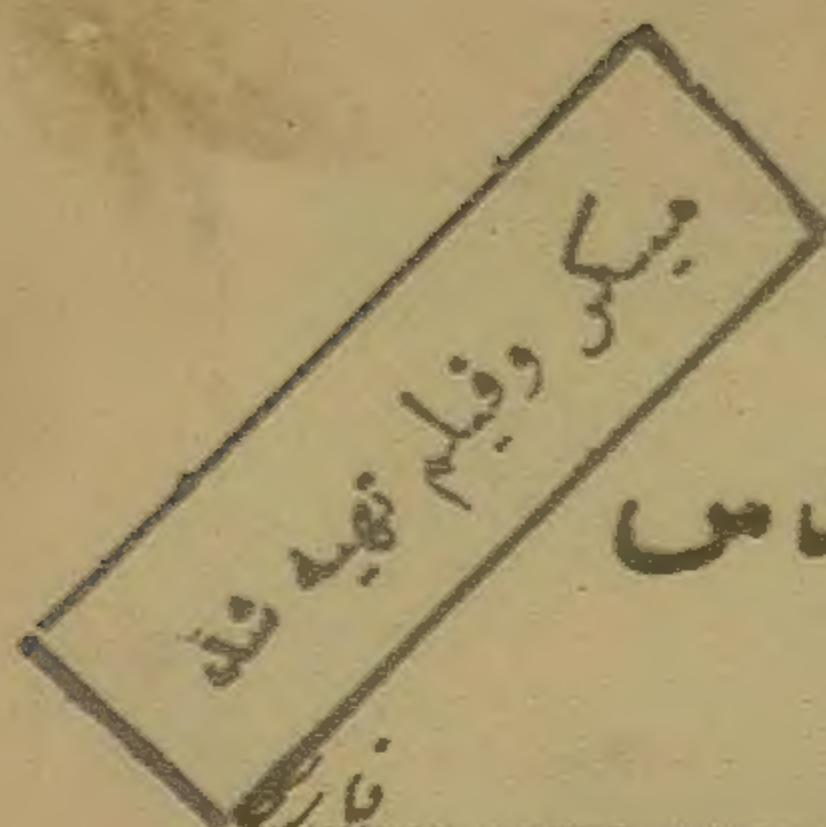 میکر وفیلم تهیه شد